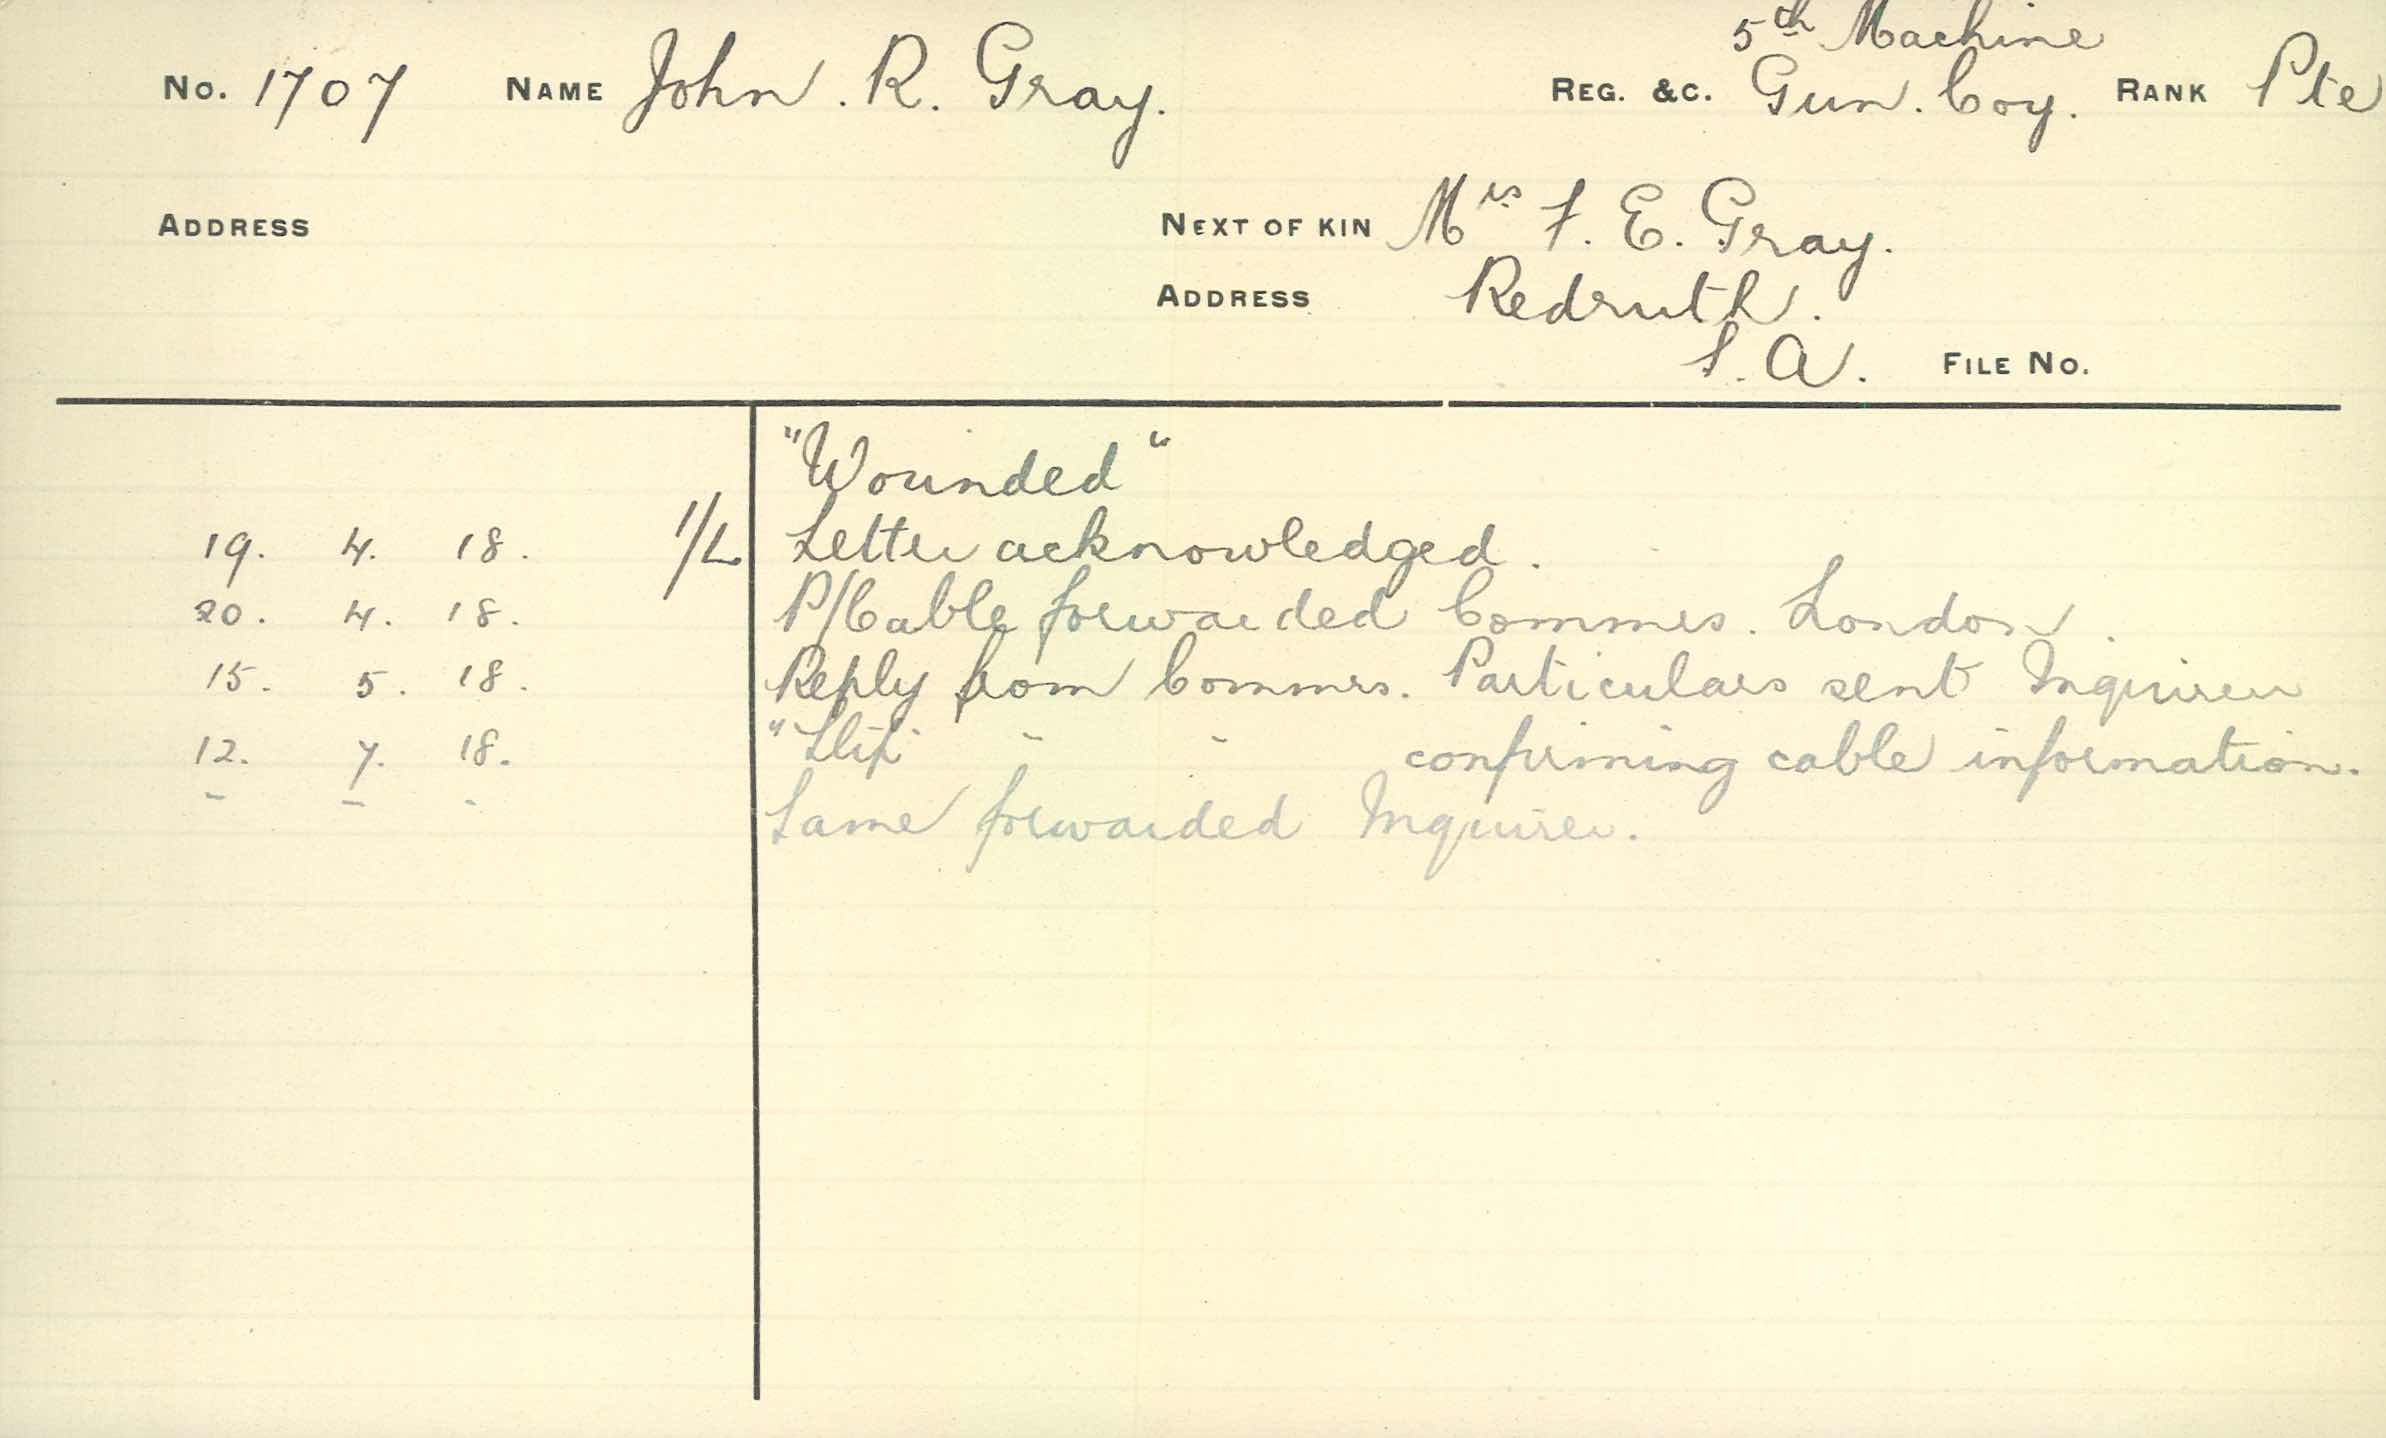 5th Machine
No. 1707 NAME John. R. Gray. REG. &C. Gun. Coy. RANK Pte
ADDRESS NEXT OF KIN Mrs F. E. Gray.
ADDRESS Redruth.
S. A. FILE No.
"Wounded"
19. 4. 18. 1/L Letter acknowledged.
20. 4. 18. P/Cable forwarded Commrs. London.
15. 5. 18. Reply from Commrs. Particulars sent Inquirer
12. 7. 18. "Slip" " " confirming cable information.
" " " Same forwarded Inquirer.